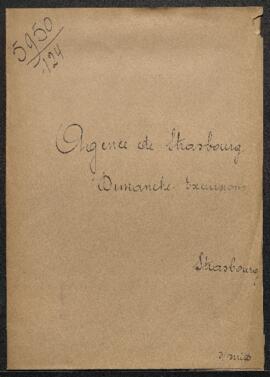 5950
124
Agence de Strasbourg
Dimanche Excursions
Strasbourg